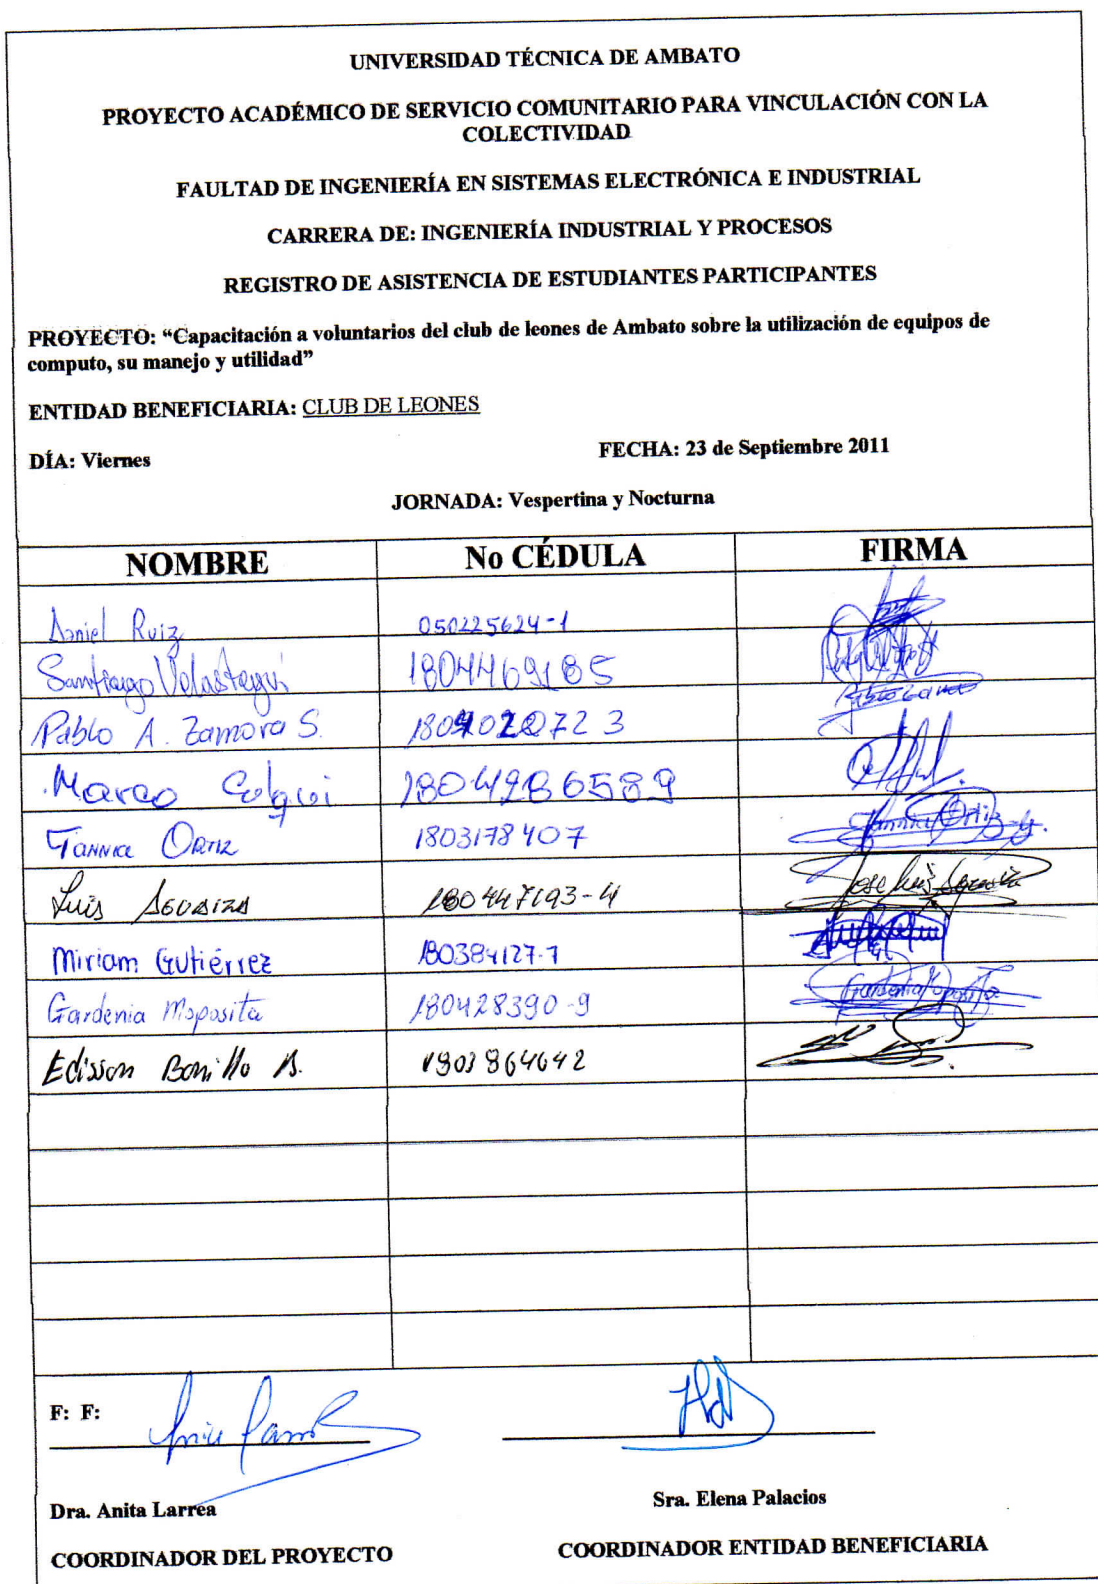 UNIVERSIDAD TÉCNICA DE AMBATO
PROYECTO ACADÉMICO DE SERVICIO COMUNITARIO PARA VINCULACIÓN CON LA
COLECTIVIDAD
FAULTAD DE INGENIERÍA EN SISTEMAS ELECTRÓNICA E INDUSTRIAL
CARRERA DE: INGENIERÍA INDUSTRIAL Y PROCESOS
REGISTRO DE ASISTENCIA DE ESTUDIANTES PARTICIPANTES
PROYECTO: “Capacitación a voluntarios del club de leones de Ambato sobre la utilización de equipos de
computo, su manejo y utilidad”
ENTIDAD BENEFICIARIA: CLUB DE LEONES
DÍA: Viernes FECHA: 23 de Septiembre 2011
JORNADA: Vespertina y Nocturna
NOMBRE No CÉDULA FIRMA
Daniel Ruiz 050225624-1
Santiago Velastegui 1804469185
Pablo A. Zamora S.
Marco 1804286589
Tannia Ortiz 1803178407
Luis 180447193-4 Jose Luis
Miriam Gutiérrez 180384127-7
Gardenia Moposita 180428390-9 Gardenia Moposita
Edisson Bonilla B. 1803864642
F: F:
Dra. Anita Larrea Sra. Elena Palacios
COORDINADOR DEL PROYECTO COORDINADOR ENTIDAD BENEFICIARIA